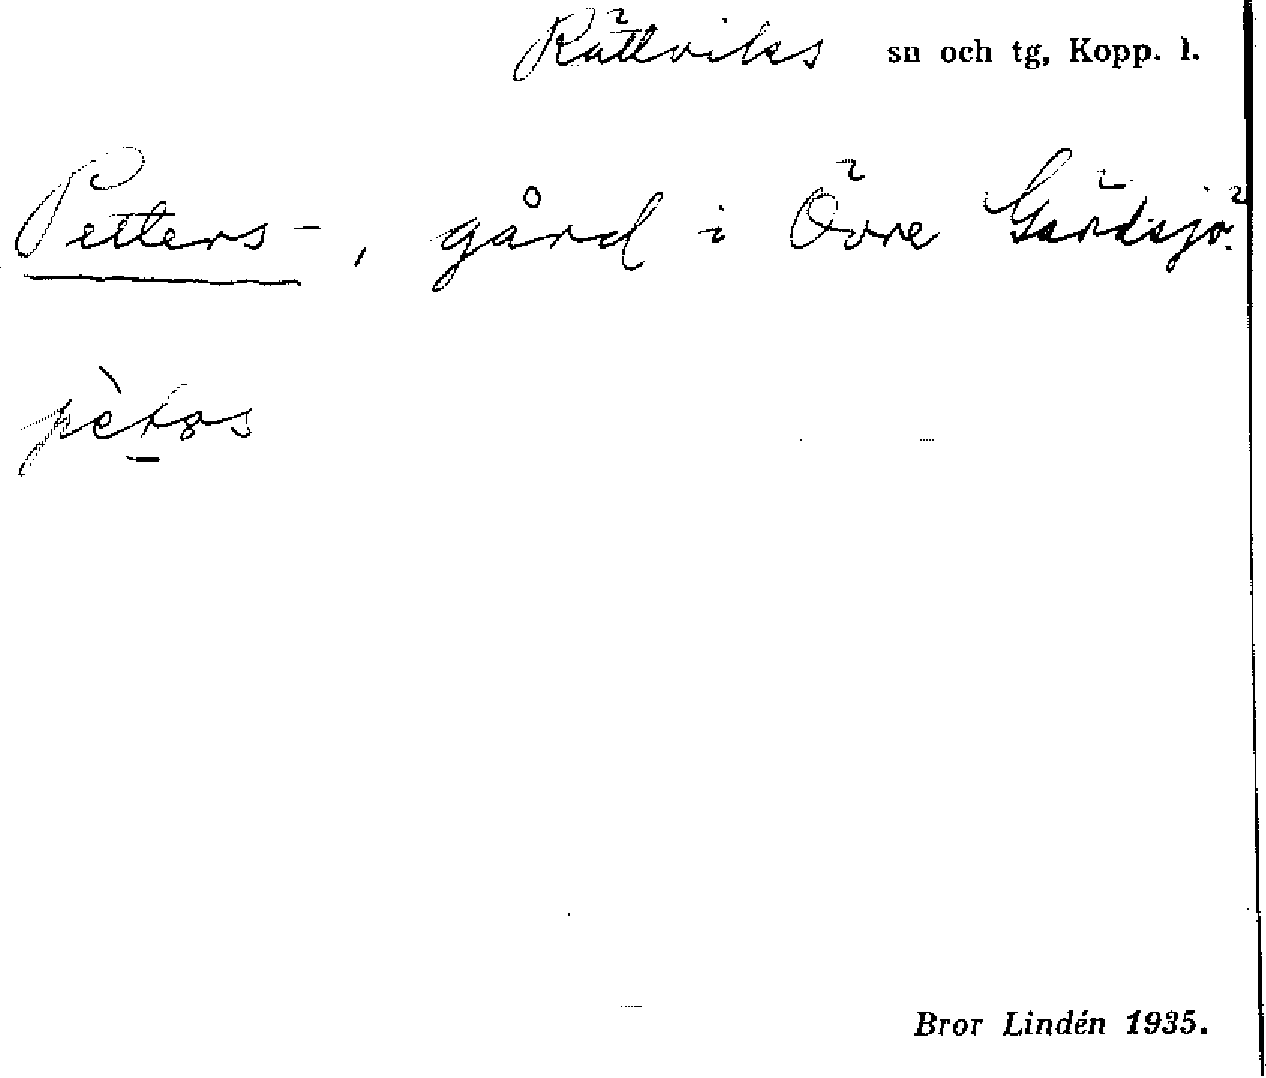 Rättviks sn och tg, Kopp. l.
Petters-, gård i Övre Gärdsjö.
pètǝs
Bror Lindén 1935.